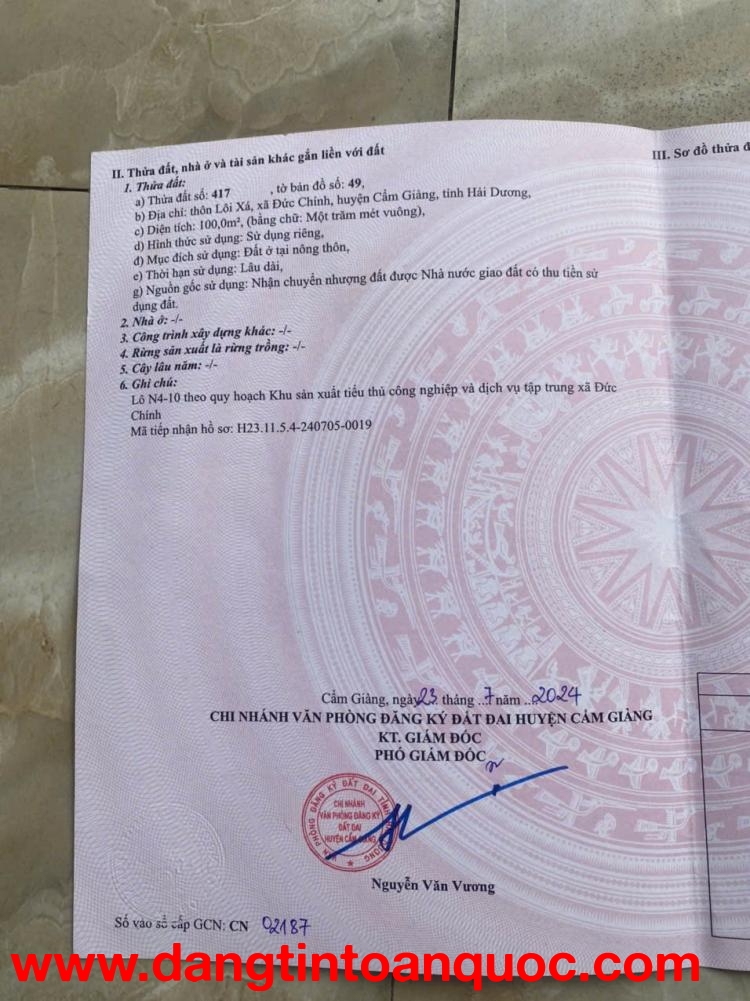 II. Thửa đất, nhà ở và tài sản khác gắn liền với đất
III. Sơ đồ thửa đ
1. Thửa đất:
a) Thửa đất số: 417 , tờ bản đồ số: 49,
b) Địa chỉ: thôn Lôi Xá, xã Đức Chính, huyện Cẩm Giàng, tỉnh Hải Dương,
c) Diện tích: 100,0m², (bằng chữ: Một trăm mét vuông),
d) Hình thức sử dụng: Sử dụng riêng,
đ) Mục đích sử dụng: Đất ở tại nông thôn,
e) Thời hạn sử dụng: Lâu dài,
g) Nguồn gốc sử dụng: Nhận chuyển nhượng đất được Nhà nước giao đất có thu tiền sử
dụng đất.
2. Nhà ở: -/-
3. Công trình xây dựng khác: -/-
4. Rừng sản xuất là rừng trồng: -/-
5. Cây lâu năm: -/-
6. Ghi chú:
Lô N4-10 theo quy hoạch Khu sản xuất tiểu thủ công nghiệp và dịch vụ tập trung xã Đức
Chính
Mã tiếp nhận hồ sơ: H23.11.5.4-240705-0019
Cẩm Giàng, ngày 23 tháng ..7 năm ..2024
CHI NHÁNH VĂN PHÒNG ĐĂNG KÝ ĐẤT ĐAI HUYỆN CẨM GIÀNG
KT. GIÁM ĐỐC
PHÓ GIÁM ĐỐC
VĂN PHÒNG ĐĂNG KÝ ĐẤT ĐAI TỈNH
CHI NHÁNH
VĂN PHÒNG ĐĂNG KÝ
ĐẤT ĐAI
HUYỆN CẨM GIÀNG
Nguyễn Văn Vương
Số vào sổ cấp GCN: CN 02187
www.dangtintoanquoc.com